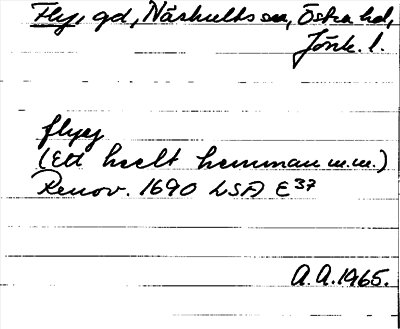 Fly, gd, Näshults sn, Östra hd,
Jönk. l.
flyg
(Ett heelt hemman m.m.)
Renov. 1690 LSA E37
A.A. 1965.